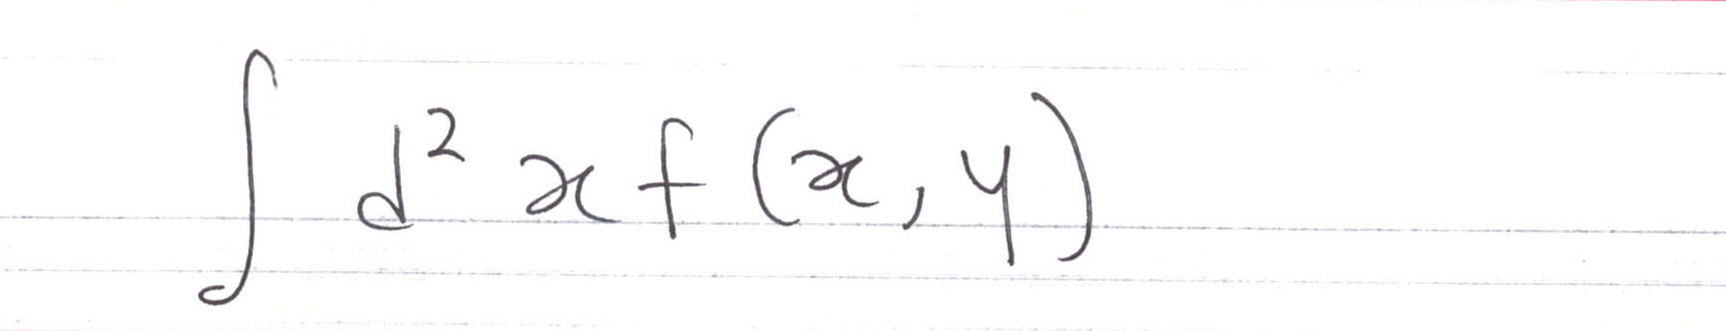 ∫ d² x f (x, y)